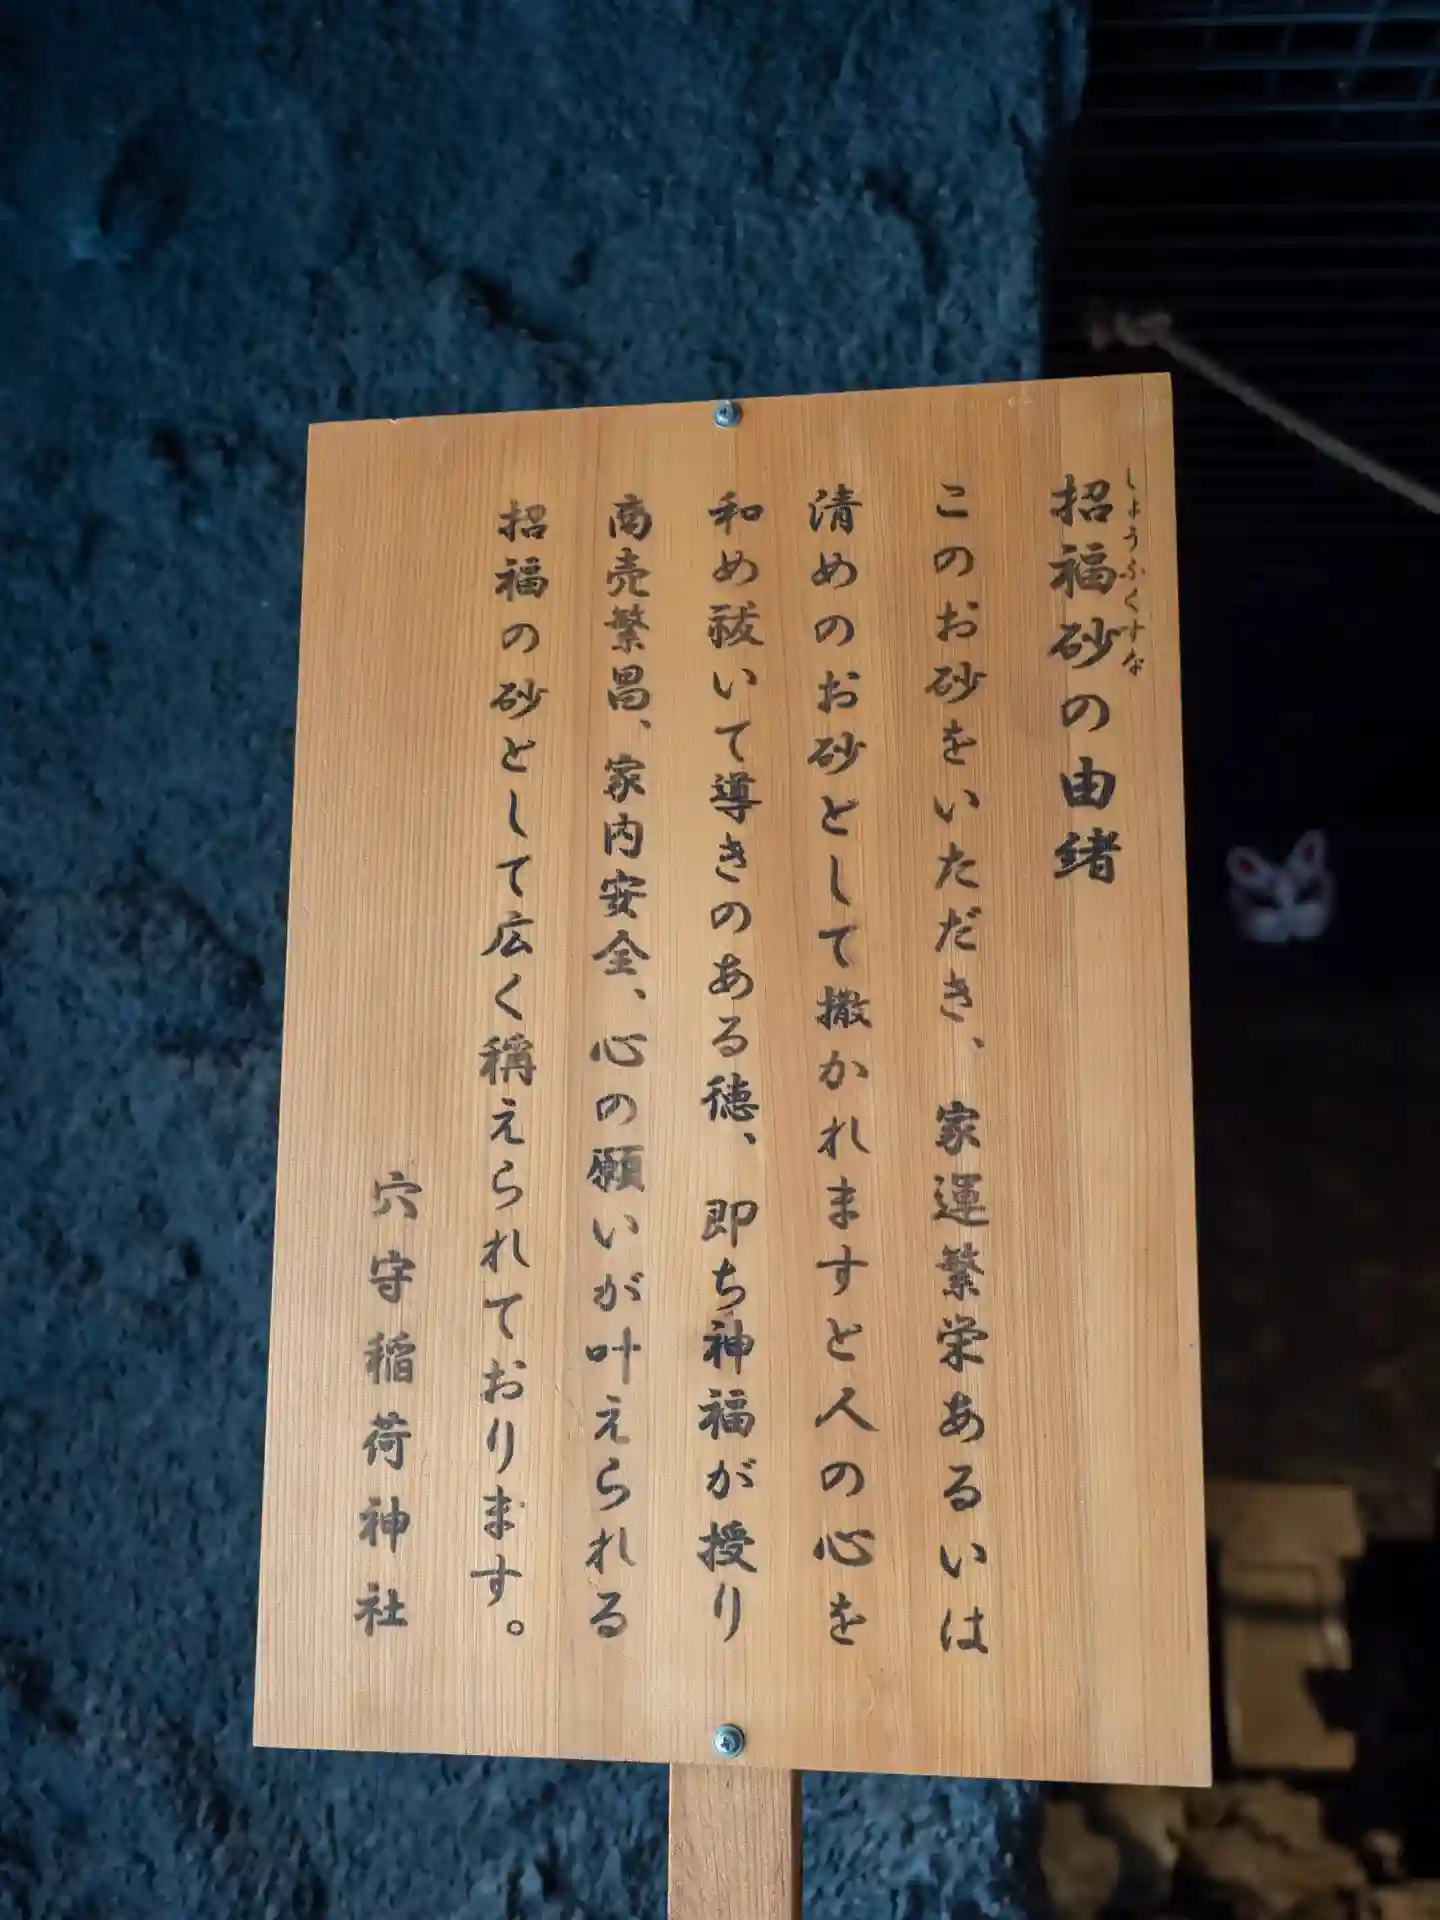 招福砂の由緒
しょうふくすな
このお砂をいただき、家運繁栄あるいは
清めのお砂として撒かれますと人の心を
和め祓いて導きのある徳、即ち神福が授り
商売繁昌、家内安全、心の願いが叶えられる
招福の砂として広く称えられております。
穴守稲荷神社